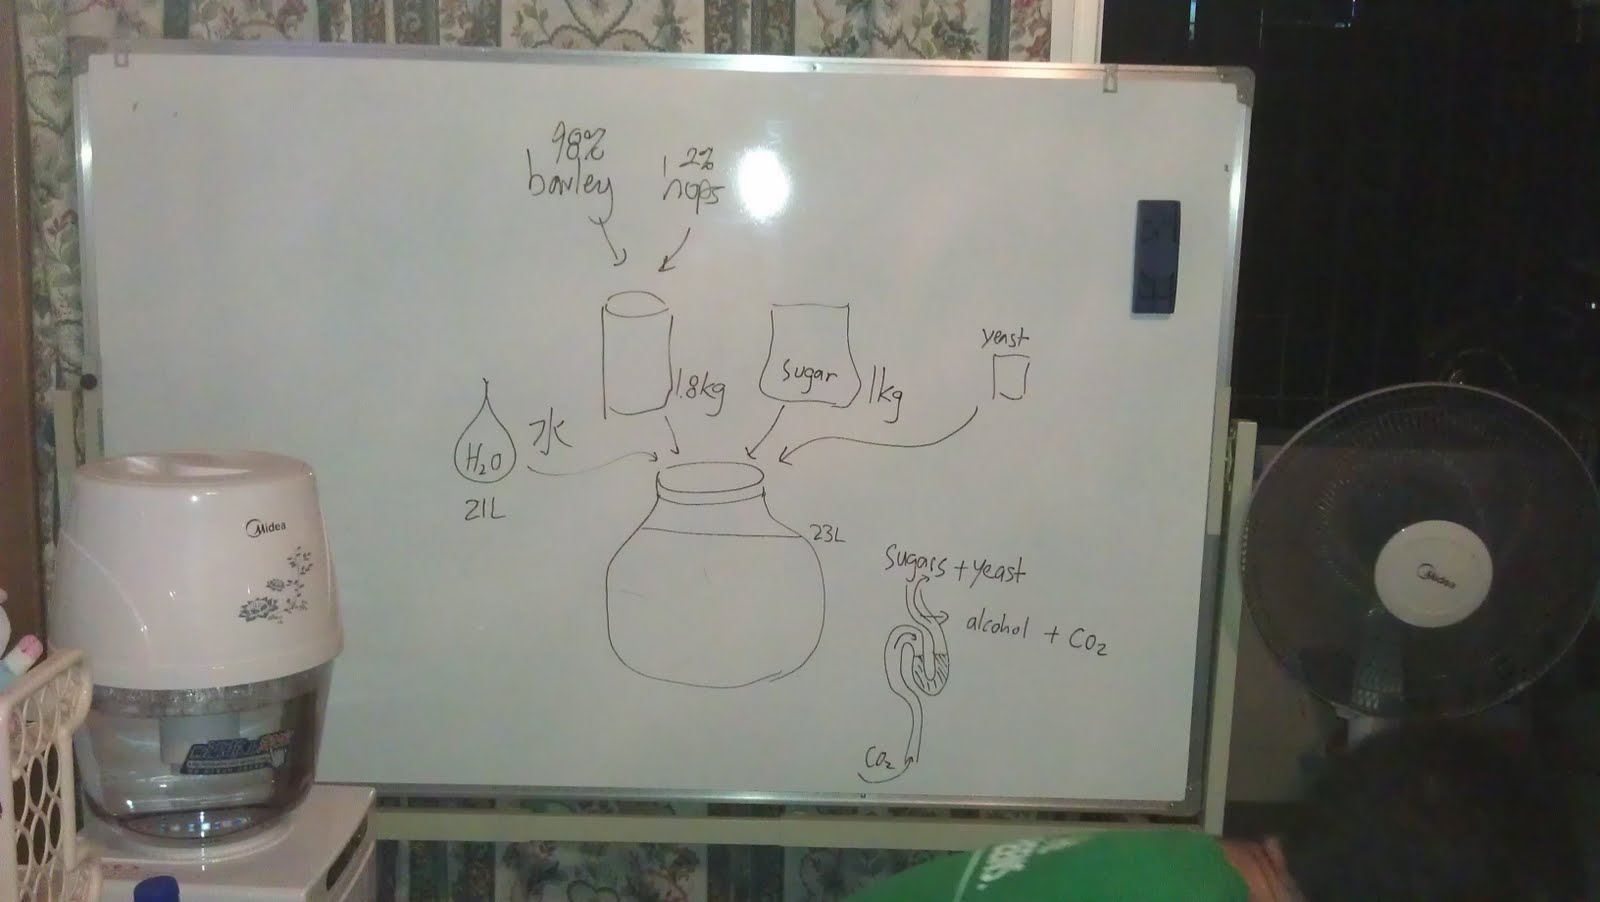 98%
barley
2%
hops
1.8kg
sugar
1kg
yeast
H₂O
水
21L
23L
sugars + yeast
alcohol + CO₂
CO₂
Midea
Midea